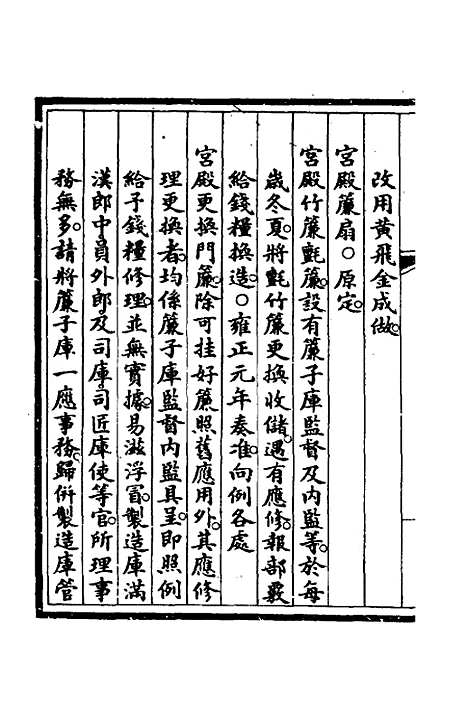 改用黃飛金成做。
宮殿簾扇○原定。
宮殿竹簾氈簾。設有簾子庫監督及內監等。於每
歲冬夏。將氈竹簾更換收儲。遇有應修。報部覈
給錢糧換造。○雍正元年奏准。向例各處
宮殿更換門簾。除可挂好簾照舊應用外。其應修
理更換者。均係簾子庫監督內監具呈。即照例
給子錢糧修理。並無實據。易滋浮冒。製造庫滿
漢郎中員外郎。及司庫司匠庫使等官。所理事
務無多。請將簾子庫一應事務。歸併製造庫管